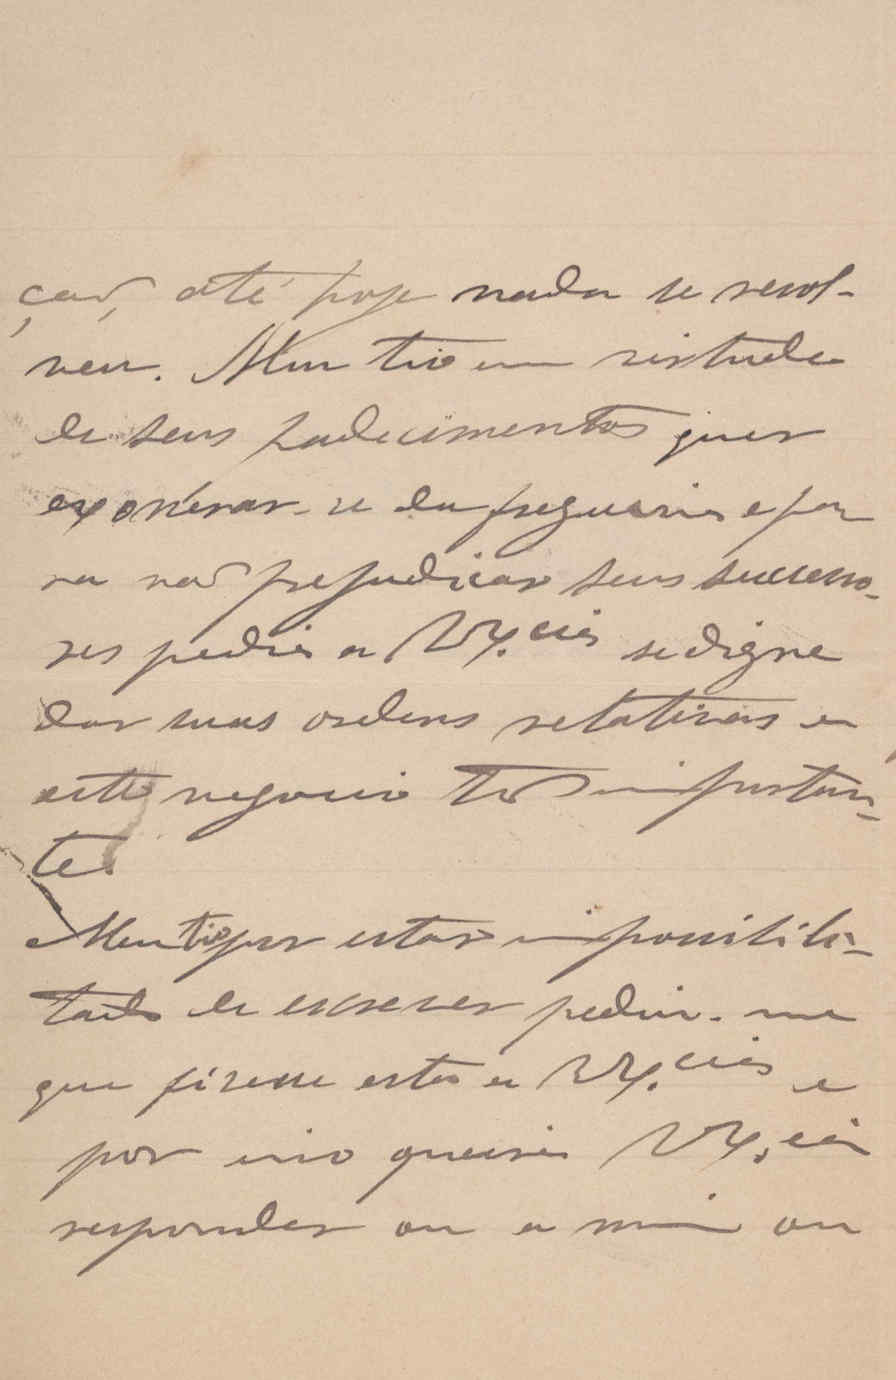 ção, até hoje nada se resol-
veu. Meu tio em virtude
de seus padecimentos quer
exonerar-se da freguesia e pa
ra não prejudicar seus successo-
res pedia a V Ex.cia se digne
dar suas ordens relativas a
este negocio tão importan-
te.
Meu tio por estar impossibili-
tado de escrever pediu-me
que fizesse esta a V Ex.cia e
por isso queira V Ex.cia
responder ou a mim ou